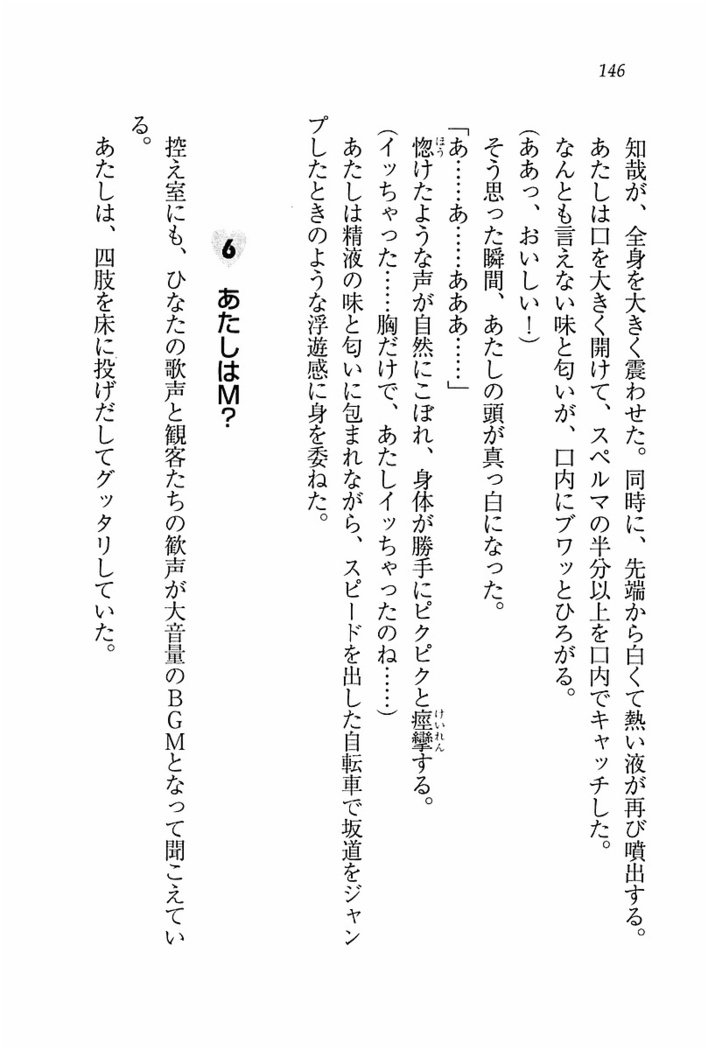 146
知哉が、全身を大きく震わせた。同時に、先端から白くて熱い液が再び噴出する。
あたしは口を大きく開けて、スペルマの半分以上を口内でキャッチした。
なんとも言えない味と匂いが、口内にブワッとひろがる。
(ああっ、おいしい！)
そう思った瞬間、あたしの頭が真っ白になった。
「あ……あ……あああ……」
惚けたような声が自然にこぼれ、身体が勝手にピクピクと痙攣する。
(イッちゃった……胸だけで、あたしイッちゃったのね……)
あたしは精液の味と匂いに包まれながら、スピードを出した自転車で坂道をジャン
プしたときのような浮遊感に身を委ねた。
6 あたしはM？
控え室にも、ひなたの歌声と観客たちの歓声が大音量のBGMとなって聞こえてい
る。
あたしは、四肢を床に投げだしてグッタリしていた。